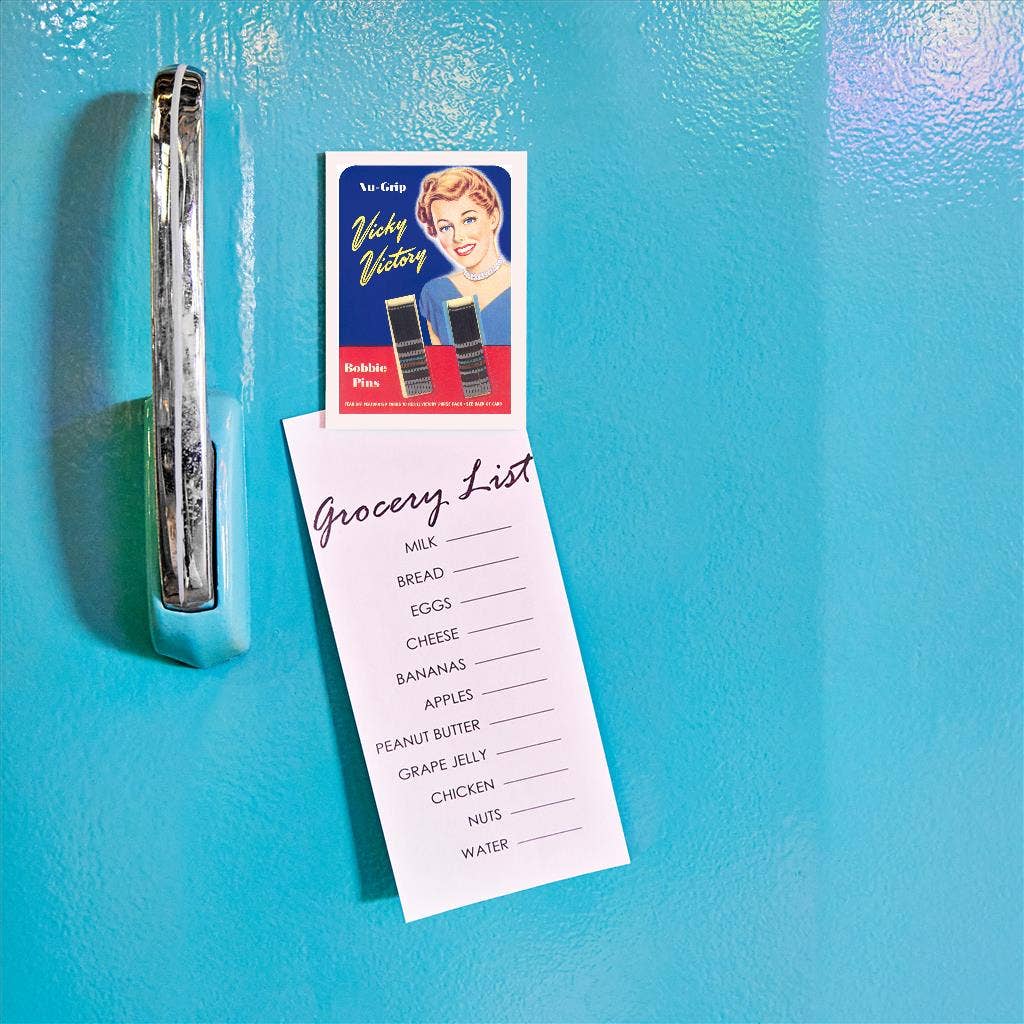 Nu-Grip
Vicky
Victory
Bobbie
Pins
Grocery List
MILK
BREAD
EGGS
CHEESE
BANANAS
APPLES
PEANUT BUTTER
GRAPE JELLY
CHICKEN
NUTS
WATER